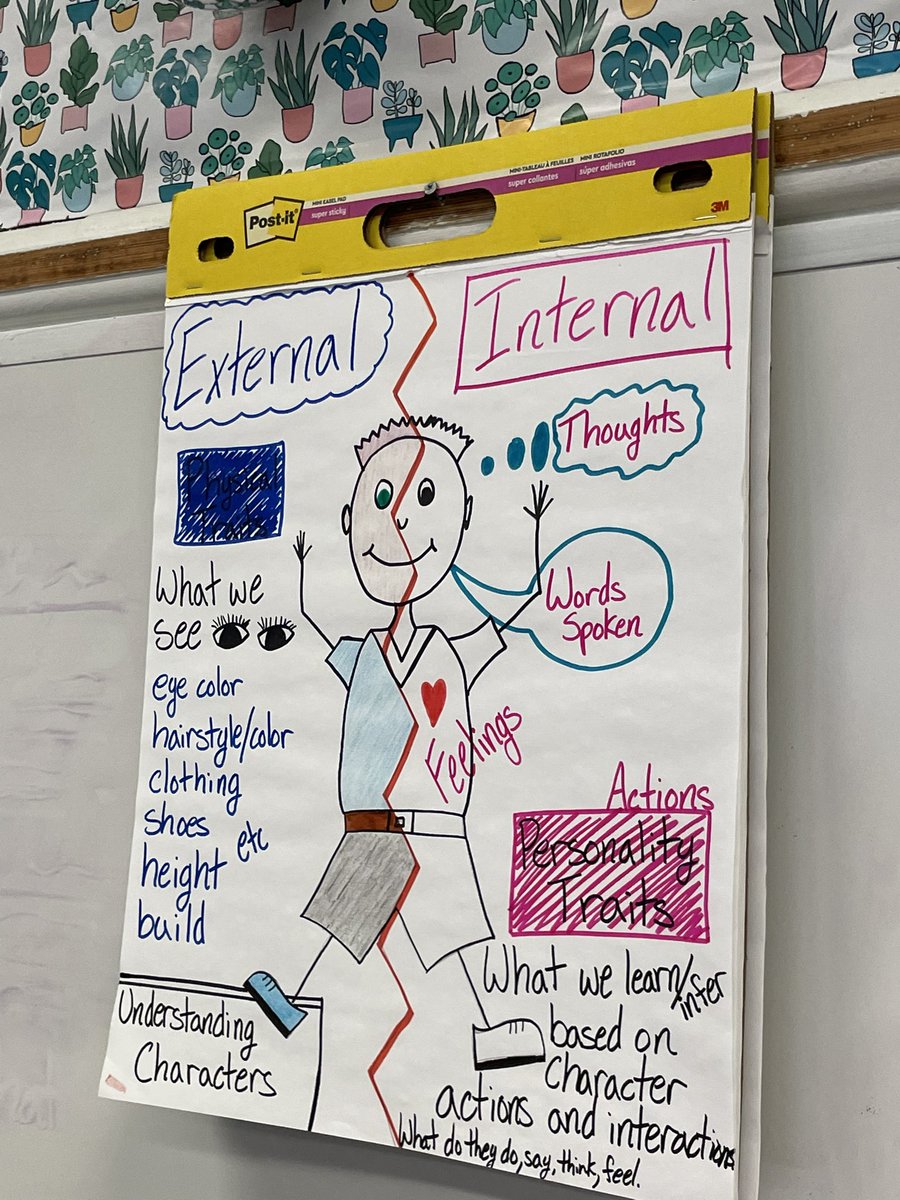 Post-it®
MINI EASEL PAD
super sticky
MINI-TABLEAU À FEUILLES
super collantes
MINI ROTAFOLIO
súper adhesivas
3M
External
Internal
Physical
Traits
What we
see
eye color
hairstyle/color
clothing
shoes
etc
height
build
Understanding
Characters
Thoughts
Words
Spoken
Feelings
Actions
Personality
Traits
What we learn/infer
based on
Character
actions and interactions
What do they do, say, think, feel.